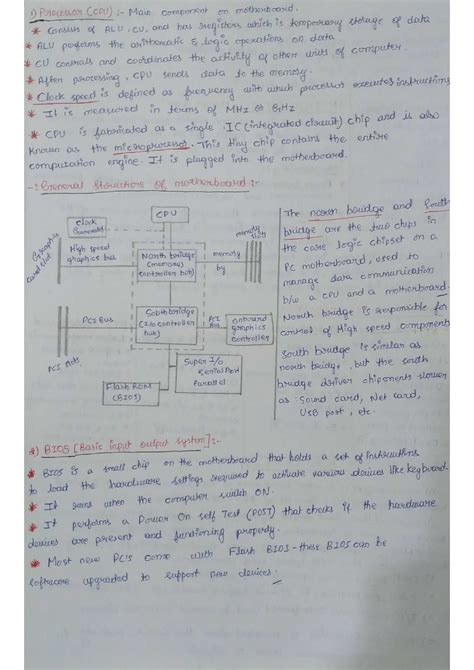 1) Processor (CPU) :- Main component on motherboard.
* Consists of ALU, CU, and has registers which is temporary storage of data
* ALU performs the arithmetic & logic operations on data
* CU controls and coordinates the activity of other units of computer.
* After processing, CPU sends data to the memory.
* Clock speed is defined as frequency with which processor executes instructions
* It is measured in terms of MHz or GHz
* CPU is fabricated as a single IC (integrated circuit) chip and is also
known as the microprocessor. This tiny chip contains the entire
computation engine. It is plugged into the motherboard.
-: General Structure of motherboard :-
CPU
Clock
Generator
Graphics
card slot
High speed
graphics bus
North bridge
(memory)
controller hub)
memory
by
memory
slots
PCI Bus
PCI slots
South bridge
(I/o controller
hub)
PCI
Bus
onboard
graphics
controller
Super I/o
Serial Port
Parallel
Flash ROM
(BIOS)
The north bridge and South
bridge are the two chips in
the core logic chipset on a
PC motherboard, used to
manage data communication
b/w a CPU and a motherboard.
North bridge is responsible for
control of High speed components
South bridge is similar as
north bridge, but the south
bridge driver chiponents slower
as : Sound card, Net card,
USB port, etc.
2) BIOS [Basic input output system] :-
* BIOS is a small chip on the motherboard that holds a set of instructions
to load the hardware settings required to activate various devices like keyboard.
* It runs when the computer switch ON.
* It performs a Power On self Test (POST) that checks if the hardware
devices are present and functioning properly.
* Most new PC's come with Flash BIOS - these BIOS can be
software upgraded to support new devices.